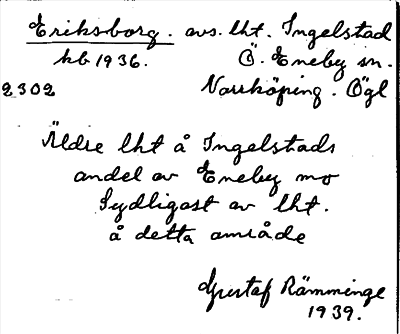 Eriksborg. avs. lht. Ingelstad
kb 1936. Ö. Eneby sn.
2302 Norrköping. Ögl
Äldre lht å Ingelstads
andel av Eneby mo
Sydligast av lht.
å detta område
Gustaf Rämminge
1939.